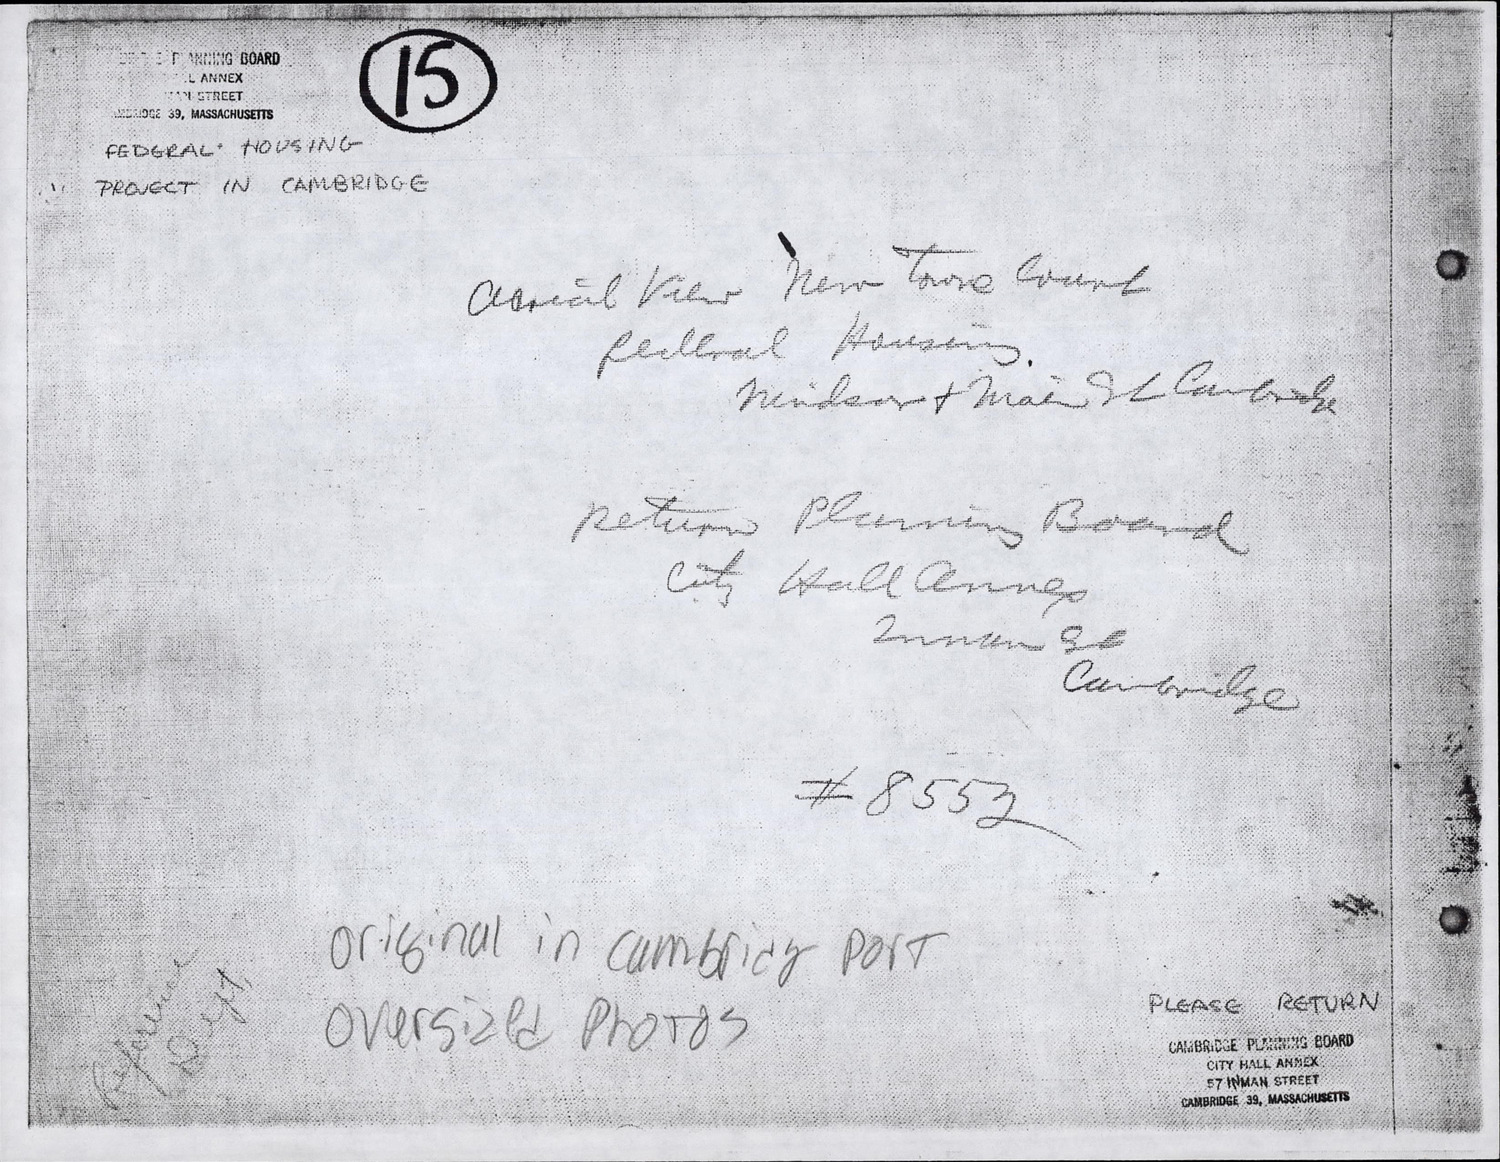 PLANNING BOARD
L ANNEX
STREET
39, MASSACHUSETTS
15
FEDERAL HOUSING
PROJECT IN CAMBRIDGE
Aerial View New Towne Court
Federal Housing
Windsor + Main St Cambridge
Return Planning Board
City Hall Annex
Inman St
Cambridge
# 8552
original in Cambridge Port
oversized Photos
Reference
Dept,
PLEASE RETURN
CAMBRIDGE PLANNING BOARD
CITY HALL ANNEX
57 INMAN STREET
CAMBRIDGE 39, MASSACHUSETTS